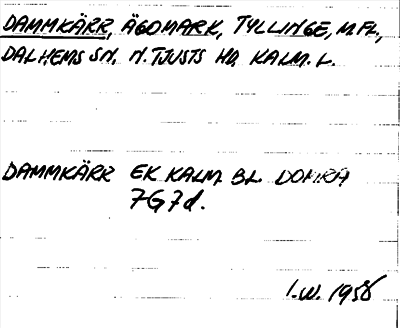 DAMMKÄRR, ÄGOMARK, TYLLINGE, M.FL.,
DALHEMS SN, N. TJUSTS HD, KALM. L.
DAMMKÄRR EK KALM. BL. DOMRA
7G7d.
I.W. 1956